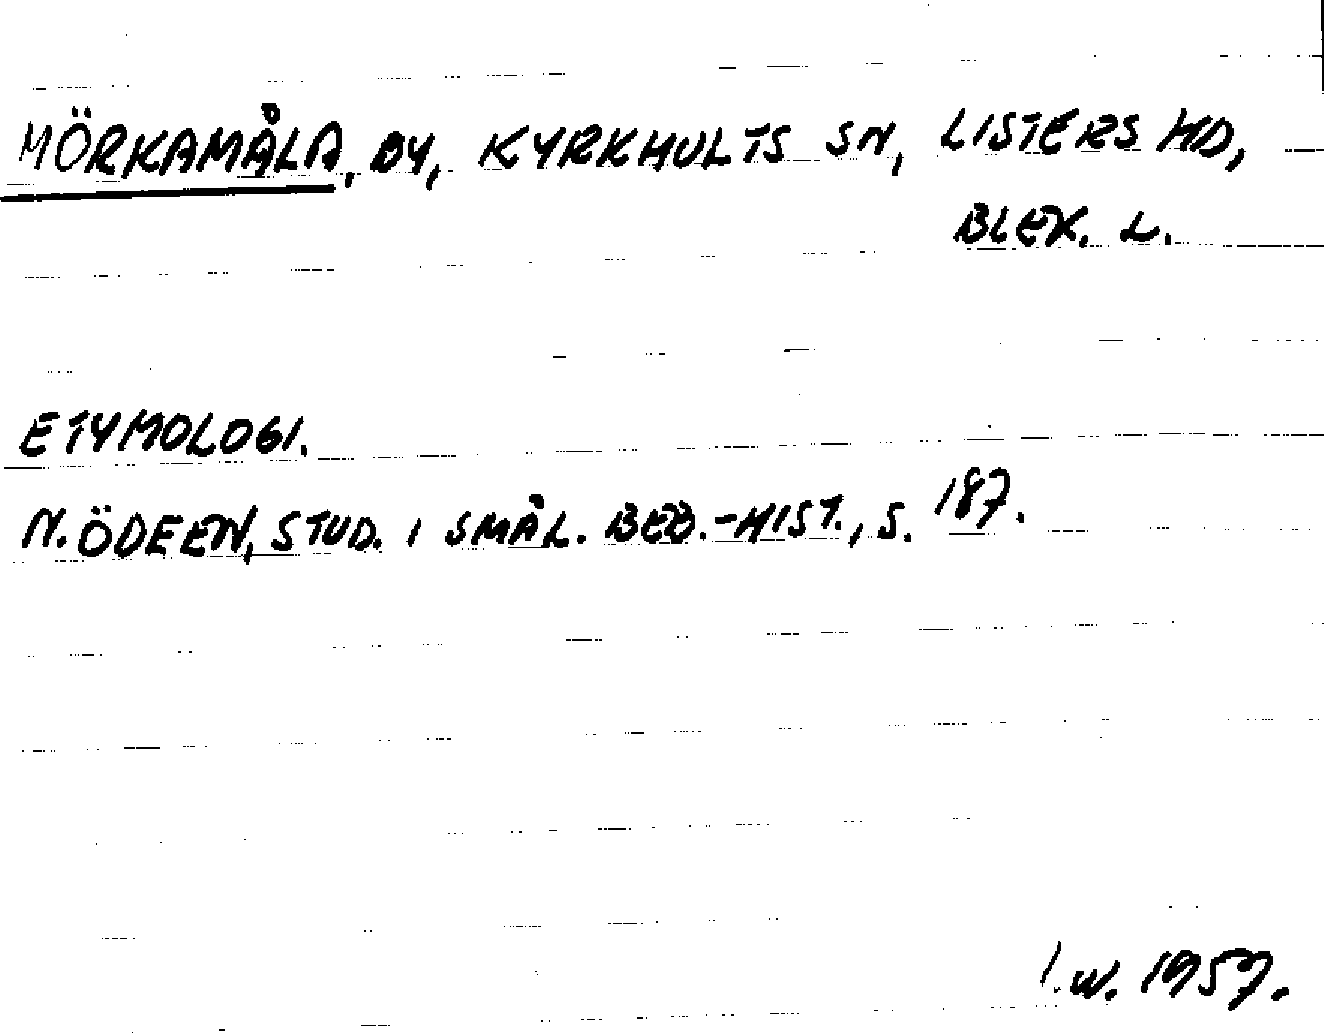 MÖRKAMÅLA, BY, KYRKHULTS SN, LISTERS HD,
BLEK. L.
ETYMOLOGI.
N. ÖDEEN, STUD. I SMÅL. BEB.-HIST., S. 187.
I.W. 1957.